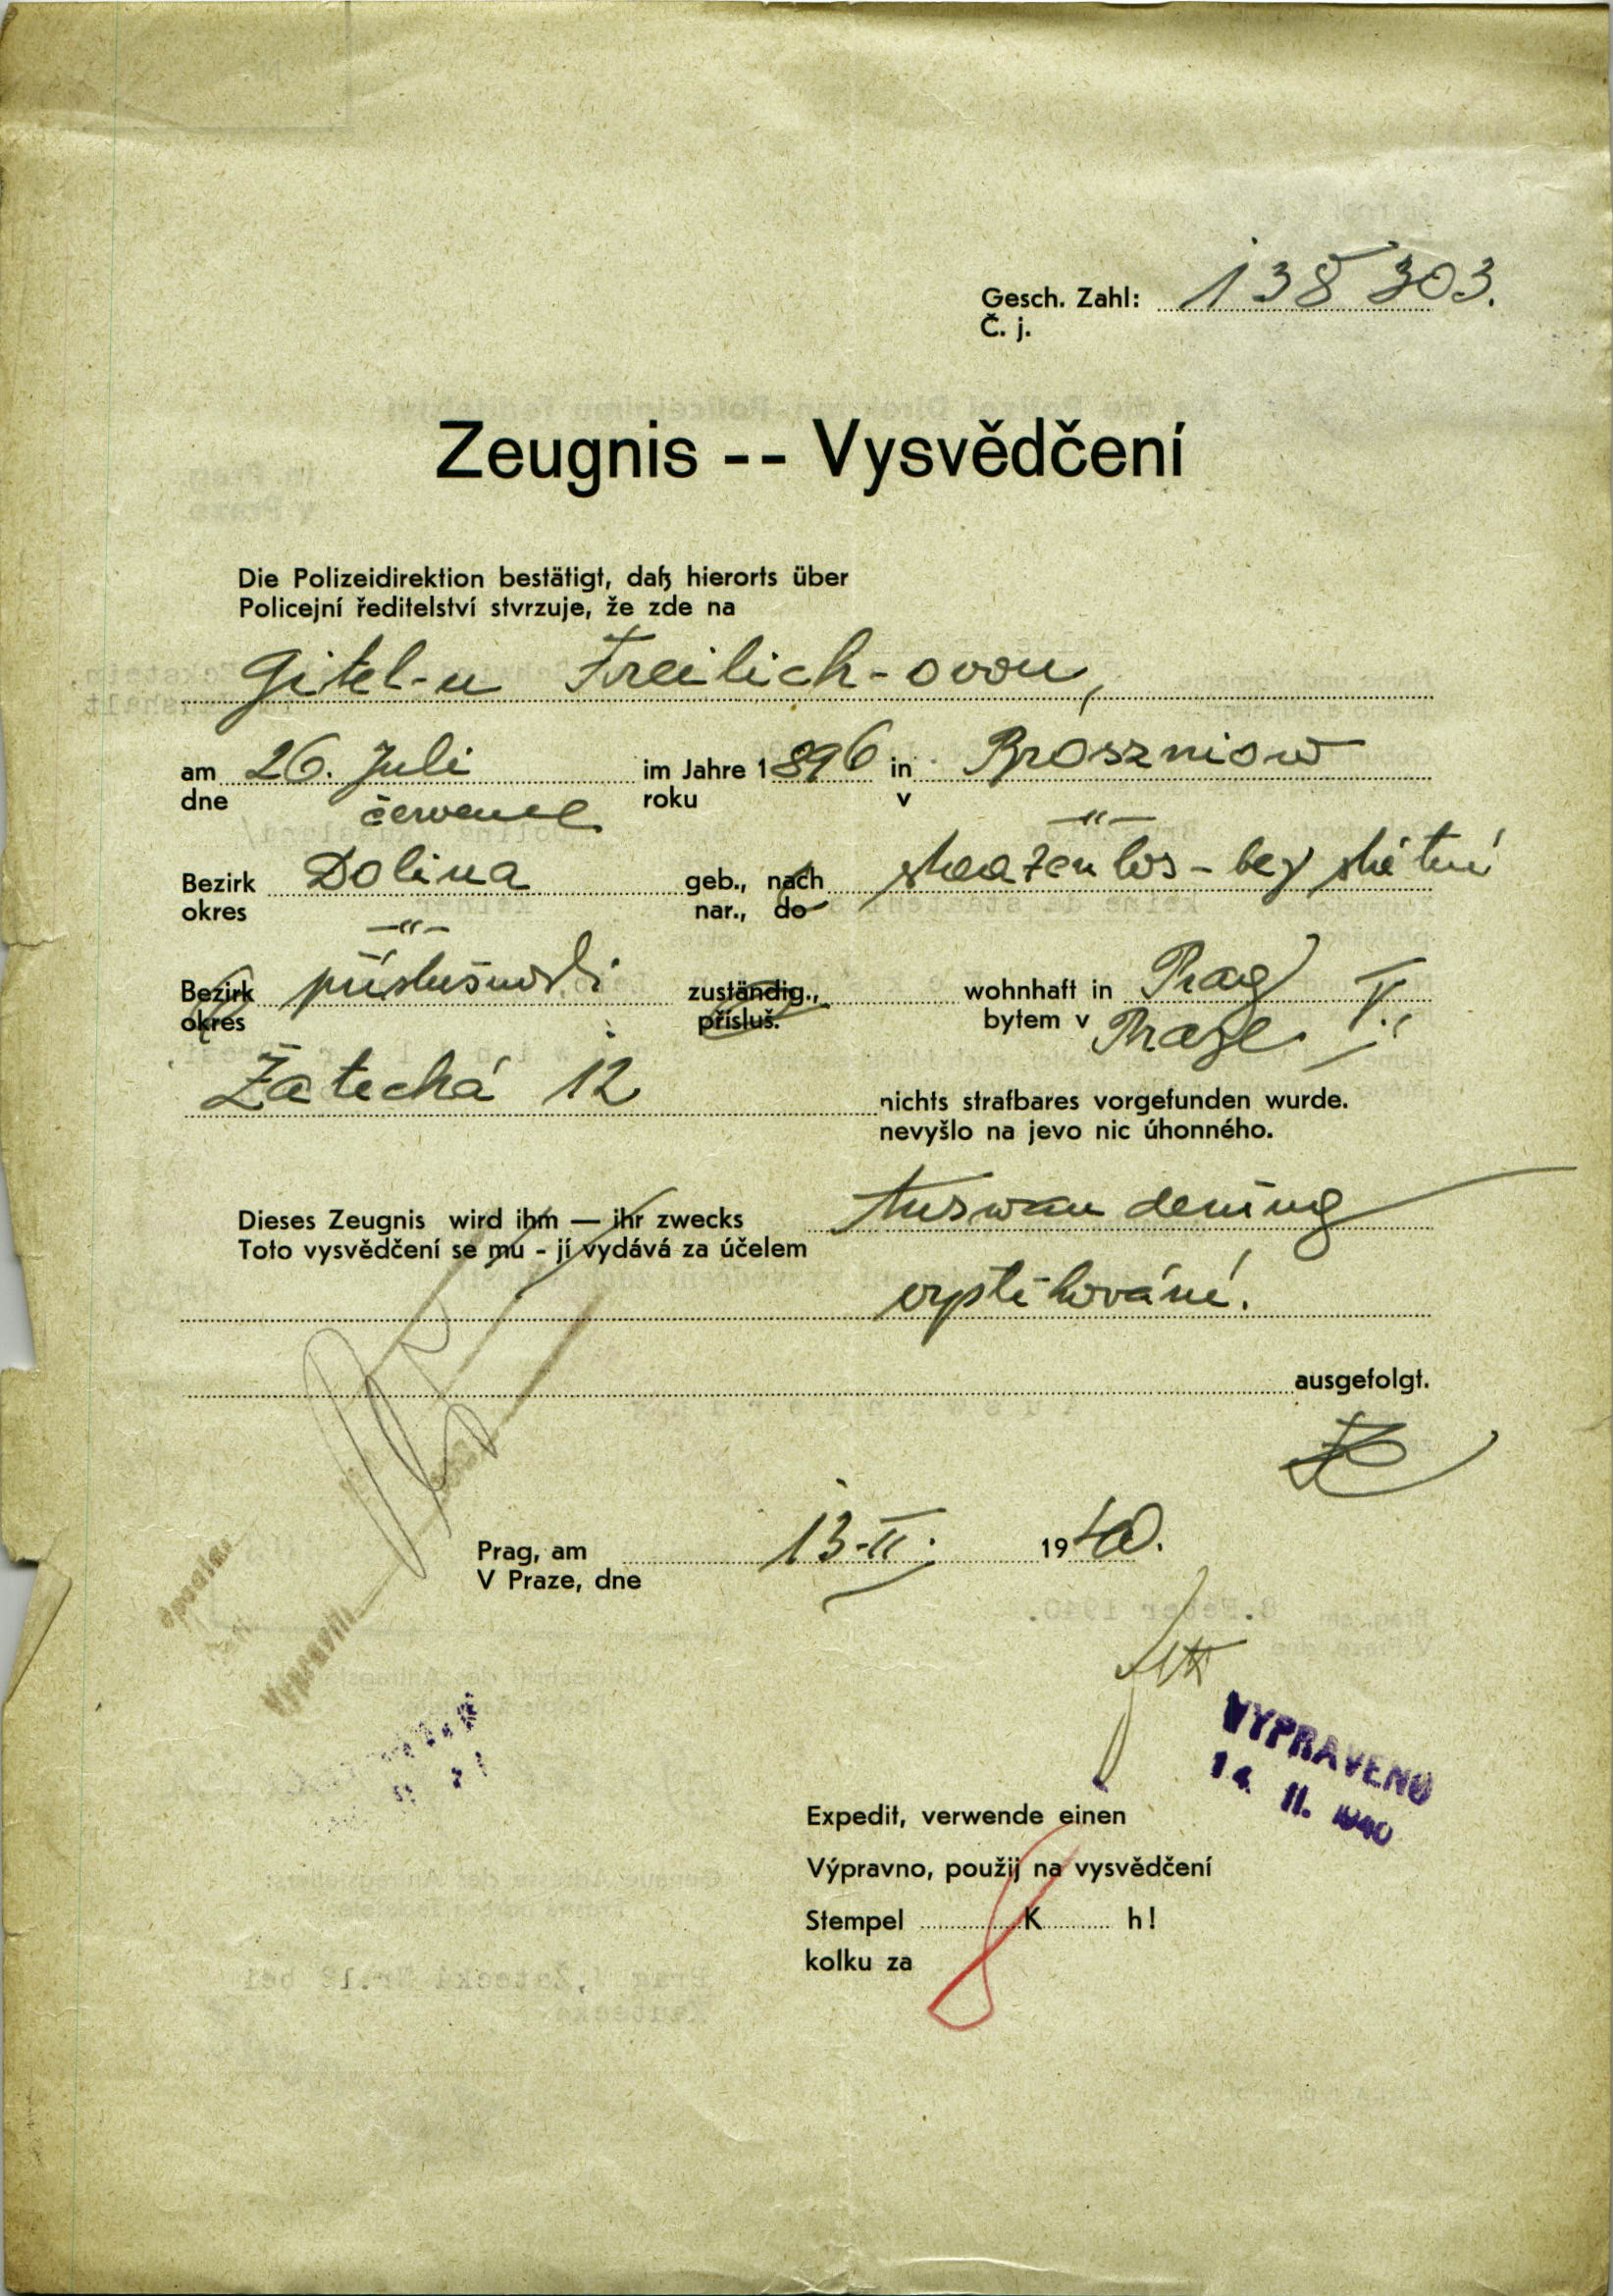 Gesch. Zahl: 138 303.
Č. j.
Zeugnis -- Vysvědčení
Die Polizeidirektion bestätigt, daß hierorts über
Policejní ředitelství stvrzuje, že zde na
Gitel-u Freilich-ovou,
am 26. Juli im Jahre 1896 in Brószniow
dne červenec roku v -"-
Bezirk Dolina geb., nach staatenlos - bez státní
okres -"- nar., do
Bezirk příslušnosti zuständig., wohnhaft in Prag V.,
okres přísluš. bytem v Praze
Žatecká 12 nichts strafbares vorgefunden wurde.
nevyšlo na jevo nic úhonného.
Dieses Zeugnis wird ihm — ihr zwecks Auswanderung
Toto vysvědčení se mu - jí vydává za účelem
vystěhování.
ausgefolgt.
Prag, am 13-II. 1940.
V Praze, dne
Vypravili
VYPRAVENO
14. II. 1940
Expedit, verwende einen
Výpravno, použij na vysvědčení
Stempel K h!
kolku za
8